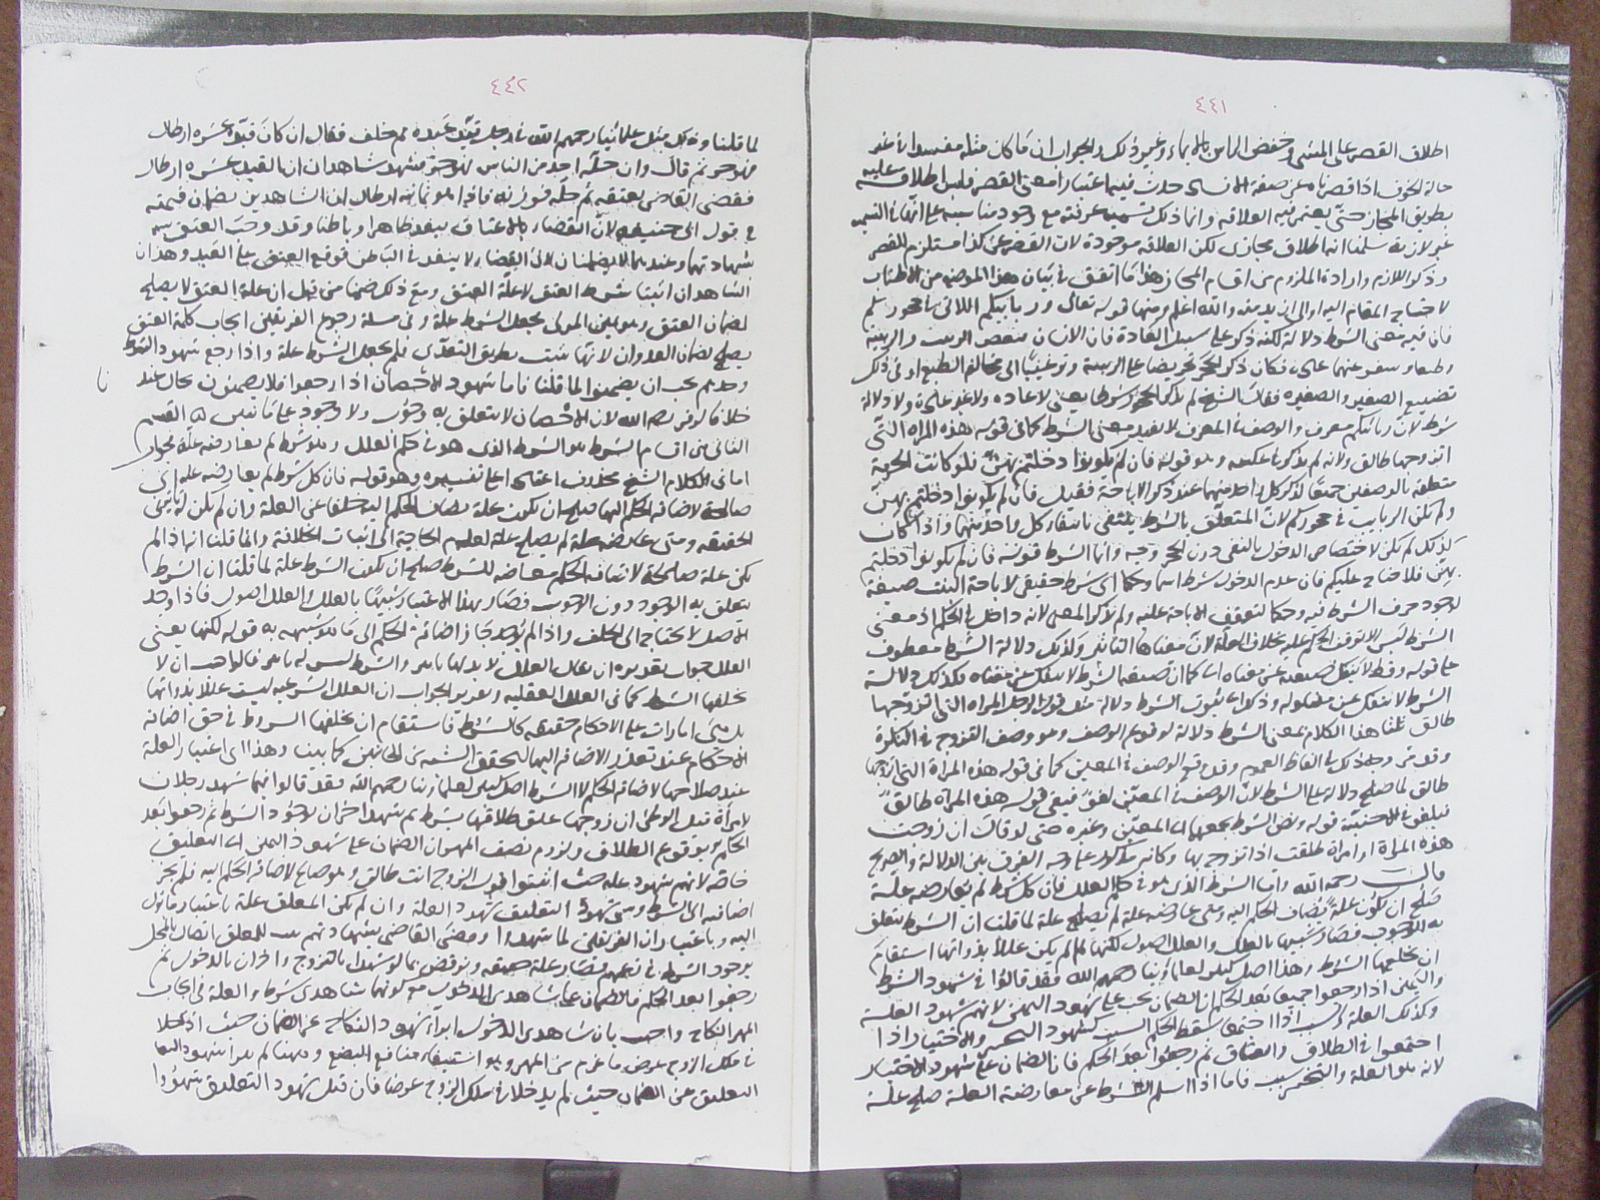 ٤٤١
اطلاق القصر على المشي وخفض الماس بالايماء وغير ذلك والجواب ان ما كان مثله مفسدا في غير
حالة الخوف اذا قصرناه عن صفة الافساد حدث فيها اعتبارا معنى القصر قبل اطلاقه عليه
بطريق المجاز حتى يعتبر فيه العلاقة وانما ذلك تسميه عرفته مع وجود
سلمنا انه اطلاق مجازى لكن العلاقة موجودة لان القصر عن كذا مستلزم للقصر
وذكر اللازم وارادة الملزوم من اقسام المجاز هذا ما اتفق في بيان هذا الموضع من الاطناب
لاحتياج المقام اليه اوالى ازيد منه والله اعلم ومنها قوله تعالى وربايبكم اللاتي في حجوركم
فان فيه معنى الشرط دلالة لكنه ذكر على سبيل العادة فان الانسان
فكان ذكر الحجر تحريضا على الربيبة وترغيبا الى مخالفة الطبع او في ذلك
تضييع الصغير والصغيرة فقال الشيخ لم يذكر الحجر شرطا يعني لا عادة ولا غير عادة ولا دلالة
شرط لان ربائبكم معرف والوصف في المعرف لا يفيد معنى الشرط كما في قوله هذه المرأة التي
اتزوجها طالق ولانه لم يذكر في عكسه وهو قوله فان لم تكونوا دخلتم بهن فلو كانت الحرمة
متعلقة بالوصفين جميعا لذكر كل واحد منهما عند ذكر الاباحة فقيل فان لم تكونوا دخلتم بهن
ولم تكن الربايب في حجوركم لان المتعلق بالشرط ينتفي بانتفاء كل واحد منهما واذا كان
كذلك لم يكن لاختصاص الدخول بالنفى دون الحجر وجه وانما الشرط قوله فان لم تكونوا دخلتم
بهن فلا جناح عليكم فان عدم الدخول شرط اسما وحكما اى شرط حقيقي لاباحة البنت صيغة
لوجود حرف الشرط فيه وحكما لتوقف الاباحة عليه ولم يذكر المعنى لانه داخل في الحكم اذ معنى
الشرط ليس الا توقف الحكم عليه بخلاف العلة لان معناها التاثير وكذلك دلالة الشرط معطوف
على قوله وقط لا تنفك صيغته عن معناه اى كما ان صيغة الشرط لا تنفك عن معناه فكذلك دلالة
الشرط لا تنفك عن مدلوله وذكر اى ثبوت الشرط دلالة مثل قول الرجل المراة التي اتزوجها
طالق ثلثا هذا الكلام بمعنى الشرط دلالة لوقوع الوصف وهو وصف التزوج في النكرة
وقد مر وجه ذلك في الفاظ العموم ولو وقع الوصف في المعين كما في قوله هذه المرأة التي اتزوجها
طالق لما صلح دلالة على الشرط لان الوصف في المعين لغو فيبقى قوله هذه المرأة طالق
فيلغو في الاجنبية قوله ونص الشرط يجمعهما اى المعين وغيره حتى لو قال ان تزوجت
هذه المرأة او امرأة طلقت اذا تزوج بها وكانه ذكره على وجه الفرق بين الدلالة والصريح
قال رحمه الله واما الشرط الذى هو في حكم العلل فان كل شرط لم تعارضه علة
صلح ان تكون علة يضاف الحكم اليه ومتى عارضته علة لم يصلح علة لما قلنا ان الشرط يتعلق
به الوجود فصار شبيها بالعلل والعلل اصول لكنها لما لم يكن عللا بذواتها استقام
ان يخلفها الشرط وهذا اصل كبير لعلمائنا رحمهم الله فقد قالوا في شهود الشرط
واليمين اذا رجعوا جميعا بعد الحكم ان الضمان يجب على شهود اليمين لانهم شهود العلة
وكذلك العلة والسبب اذا اجتمعا سقط حكم السبب كشهود التخيير والاختيار اذا
اجتمعوا في الطلاق والعتاق ثم رجعوا بعد الحكم فان الضمان على شهود الاختيار
لانه هو العلة والتخيير سبب فاما اذا سلم الشرط عن معارضة العلة صلح علة
٤٤٢
لما قلنا وذلك مثل قول علمائنا رحمهم الله في رجل قيد عبده ثم حلف فقال ان كان قيده عشرة ارطال
فهو حر ثم قال وان حله احد من الناس فهو حر فشهد شاهدان ان القيد عشرة ارطال
فقضى القاضي بعتقه ثم حله فوزنه فاذا هو ثمانية ارطال ان الشاهدين يضمنان قيمته
في قول ابى حنيفة لان القضاء بالاعتاق ينفذ ظاهرا وباطنا وقد وجب العتق
بشهادتهما وعندهما لا يضمنان لان القضاء لا ينفذ في الباطن فوقع العتق بحل القيد وهذان
الشاهدان اثبتا شرط العتق لا علة العتق ومع ذلك ضمنا من قبل ان علة العتق لا يصلح
لضمان العتق وهو يمين المولى فجعل الشرط علة وفى مسئلة رجوع الفريقين ايجاب كلمة العتق
يصلح لضمان العدوان لانها تثبت بطريق التعدى فلم يجعل الشرط علة واذا رجع شهود الشرط
وحدهم يجب ان يضمنوا لما قلنا فاما شهود الاحصان اذا رجعوا فلا يضمنون بحال عند
خلافا لزفر رحمه الله لان الاحصان لا يتعلق به وجوب ولا وجود على ما نبين القسم
الثاني من اقسام الشرط هو الشرط الذى هو في حكم العلل وهو شرط لم يعارضه علة
اما في الكلام الشيخ محذوف اعتمادا على تفسيره وهو قوله فان كل شرط لم يعارضه علة اى
صالحة لاضافة الحكم اليها صلح ان تكون علة يضاف الحكم اليه خلفا عن العلة وان لم يكن له تاثير
الحقيقه ومتى عارضه علة لم يصلح علة لعدم الحاجة الى اثبات الخلافة ولما قلنا انه اذا لم
يكن علة صالحة لاضافة الحكم معارضة للشرط صلح ان يكون الشرط علة لما قلنا ان الشرط
يتعلق به الوجود دون الوجوب فصار بهذا الاعتبار شبيها بالعلل والعلل اصول فاذا وجد
الاصل لا يحتاج الى الخلف واذا لم يوجد جاز اضافة الحكم الى ما هو شبيهه به قوله لكنها يعنى
العلل جواب تقديره ان يقال العلل لا بد لها تاثير والشرط ليس له تاثير فالواجب ان لا
يخلفها الشرط كما في العلل العقليه وتقرير الجواب ان العلل الشرعيه ليست عللا بذواتها
بل هى امارات على الاحكام حقيقه كالشرط فاستقام ان يخلفها الشروط في حق اضافة
الاحكام عند تعذر الاضافة اليها لتحقق الشبه من الجانبين كما بينا وهذا اى اعتبار العلة
عند صلاحها لاضافة الحكم لا الشرط اصل كبير لعلمائنا رحمهم الله فقد قالوا انهما شهد رجلان
لامرأة قبل الوطى ان زوجها علق طلاقها بشرط ثم شهد اخران بوجود الشرط ثم رجعوا بعد
الحكم بوقوع الطلاق ولزوم نصف المهر ان الضمان على شهود اليمين اى التعليق
خاصة لانهم شهود علة حيث اثبتوا قول الزوج انت طالق وهو صالح لاضافة الحكم اليه فلم يجز
اضافته الى الشرط وسمى شهود التعليق شهود العلة وان لم يكن المعلق علة باعتبار ما يؤل
اليه وباعتبار ان الفريقين لما شهدوا وقضى القاضي بشهادتهم ثبت للمعلق اتصال بالمحل
بوجود الشرط في زعمهم فصار علة حقيقه ونوقض بما لو شهدا بالتزوج واخران بالدخول ثم
رجعوا بعد الحكم فالضمان على شاهدى الدخول مع كونهما شاهدى شرط والعلة في ايجاب
المهر النكاح واجيب بان شاهدى الدخول ابرآ شهود النكاح عن الضمان حيث ادخلا
في ملك الزوج عوض ما غرم من المهر وهو استيفاء منافع البضع وههنا لم يبرا شهود
التعليق عن الضمان حيث لم يدخلا في ملك الزوج عوضا فان قيل شهود التعليق شهدوا